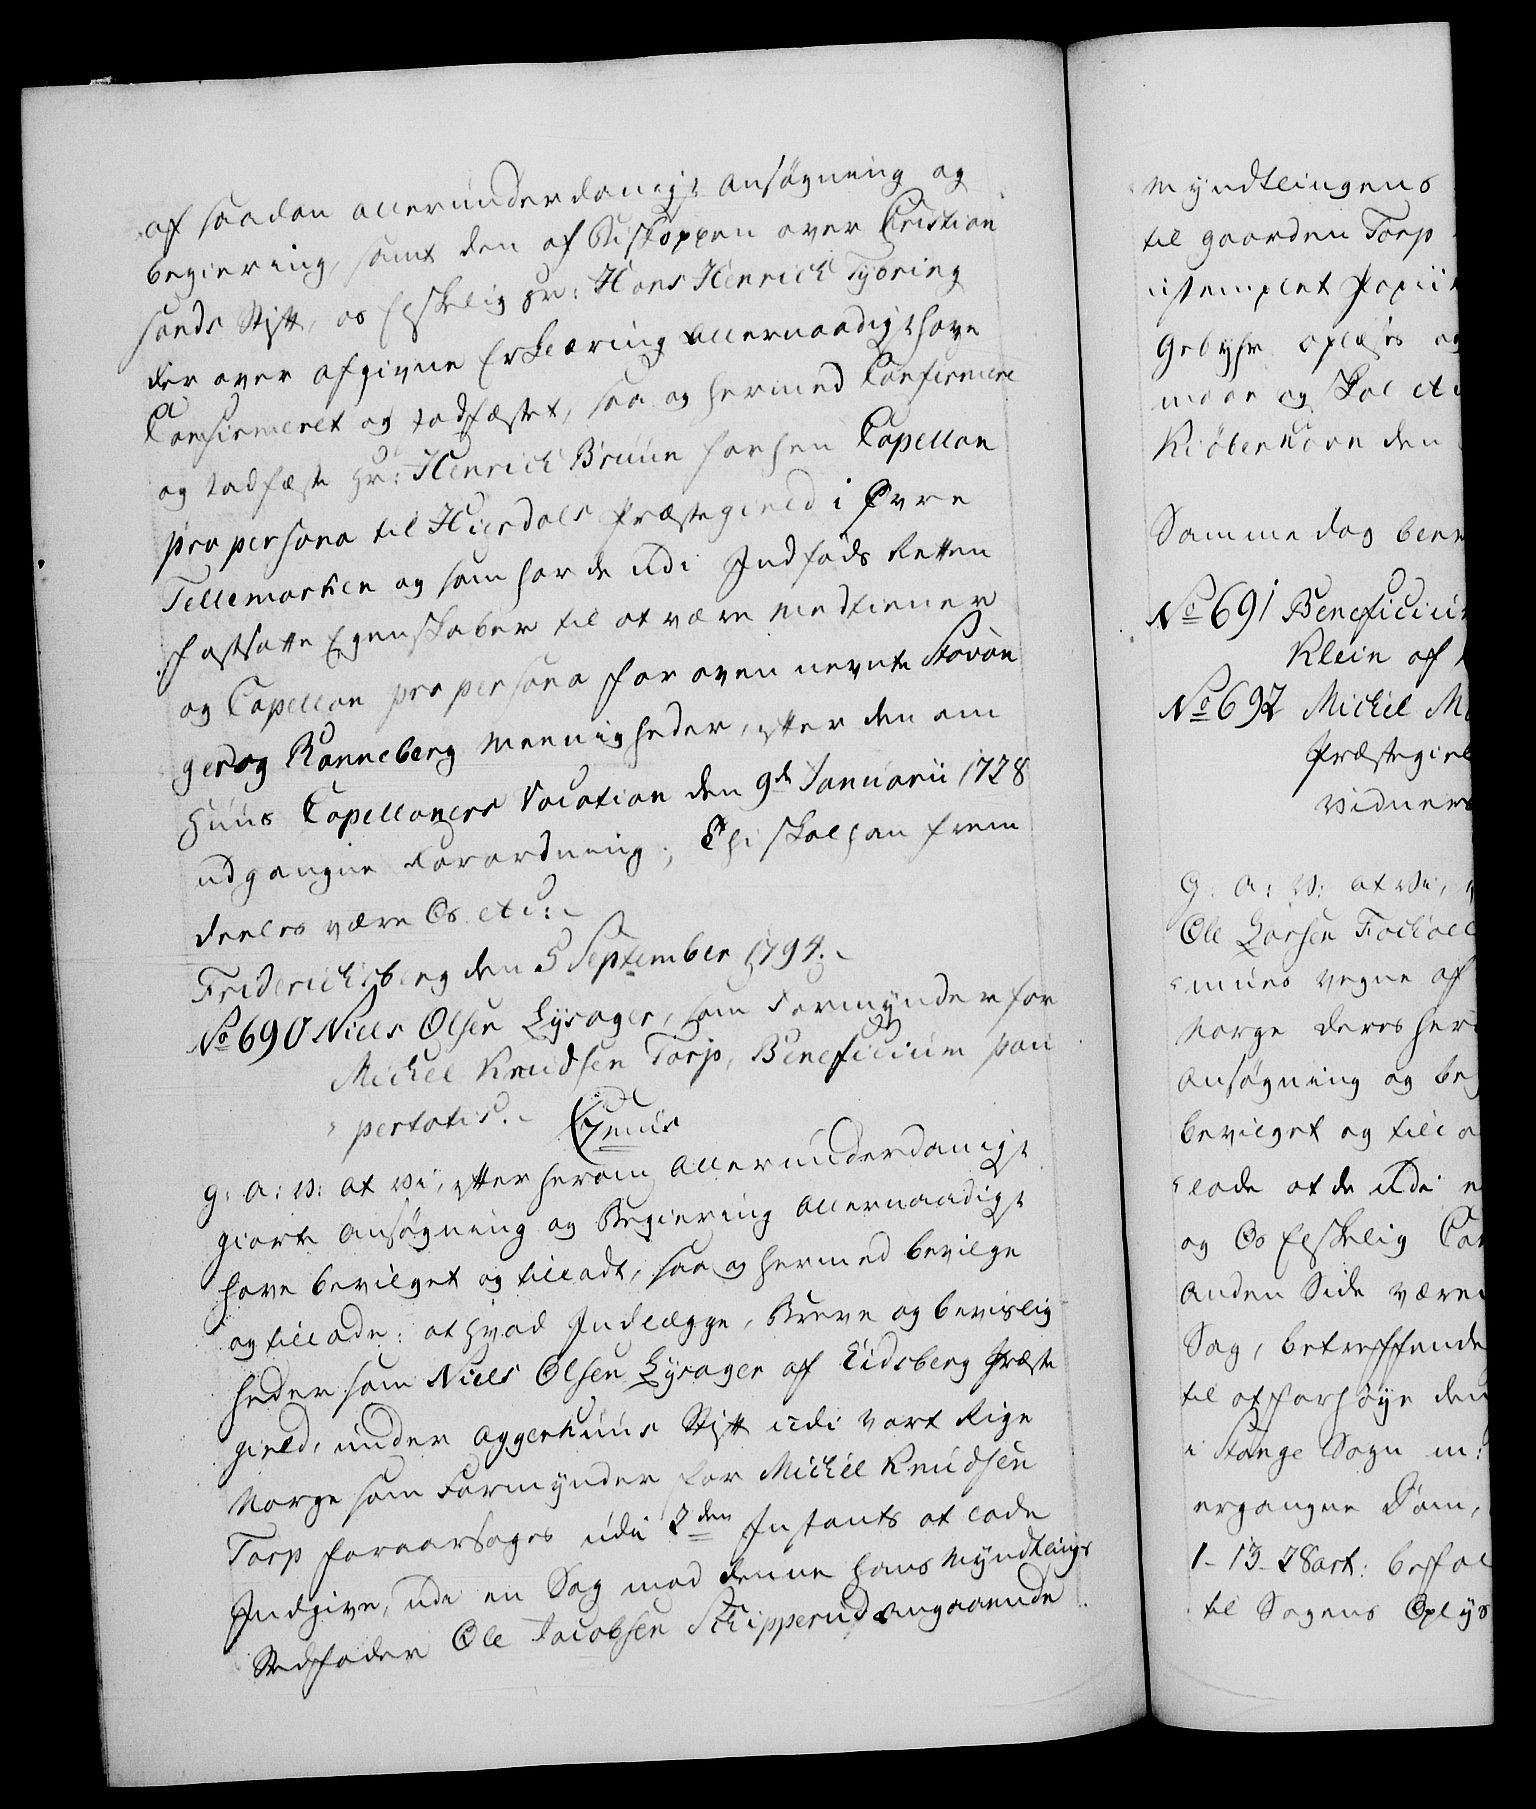 af saadan allerunderdanigst ansøgning og
begiering, samt den af Biskoppen over Cristian
sands Stift, os Elskelig Hr: Hans Henrich Tybring
der over afgivne Erklæring allernaadigst have
Confirmeret og stadfæstet, saa og hermed Confirmere
og stadfæste Hr: Henrich Bruun forhen Capellan
pro persona til Hierdals Præstegield i Øvre
Tellemarken og som har de udi Indføds Retten
fastsatte Egenskaber til at være Medtiener
og Capellan pro persona for oven nevnte Stavan
ger og Ranneberg Meenigheder, efter den om
Huus Capellaners Vocation den 9de Januarii 1728
udgangne Forordning; Thi skal han frem
deeles være Os etc:
Friderichsberg den 5 September 1794.
No 690 Niels Olsen Lysager, som Formynder for
Michel Knudsen Torp, Beneficium pau
pertatis. Genus
G: A: V: at Vi, efter herom allerunderdanigst
giorte ansøgning og Begiering allernaadigst
have bevilget og tilladt, saa og hermed bevilge
og tillade: at hvad Indlægge, Breve og bevislig
heder som Niels Olsen Lysager af Eidsberg Præste
gield, under Aggershuus Stift udi Vort Rige
Norge som Formynder for Michel Knudsen
Torp foraarsages udi 2den Instants at lade
Indgive, udi en Sag mod denne hans Myndtlings
Stedfader Ole Jacobsen Schipperud angaaende
Myndtlingens
til gaarden Torp
ustemplet Papiir
Gebyhr oplæses og
meer og skal etc
Kiøbenhavn den
Samme dag ben
No 691 Beneficiu
Klein af
No 692 Michel M
Præstegiel
vidners
G: A: V: at Vi,
Ole Larsen
muns vegne af
Norge deres her
ansøgning og beg
bevilget og tilla
lade at de udi
og Os Elskelig Ca
anden Side være
Sag, betreffende
til at forhøye den
i Stange Sogn
ergangne Dom,
1-13-28 art: befal
til Sagens Oplys